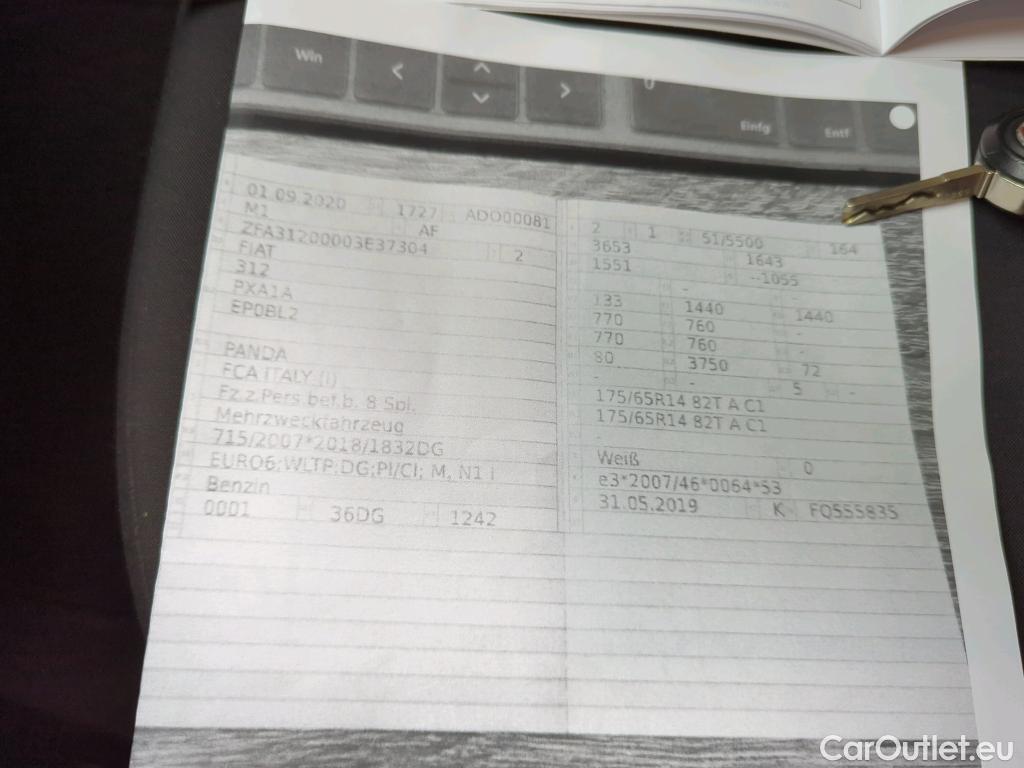 Win
Einfg
Entf
01.09.2020 1727 ADO00081
M1 AF
ZFA31200003E37304 2
FIAT
312
PXA1A
EP0BL2
PANDA
FCA ITALY (I)
Fz.z.Pers.bef.b. 8 Spl.
Mehrzweckfahrzeug
715/2007*2018/1832DG
EURO6;WLTP;DG;PI/CI; M, N1 I
Benzin
0001 36DG 1242
2 1 51/5500 164
3653 1643
1551 --1055
- -
133 1440 1440
770 760 -
770 760 -
80 3750 72
- - 5 -
175/65R14 82T A C1
175/65R14 82T A C1
-
Weiß 0
e3*2007/46*0064*53
31.05.2019 K FQ555835
CarOutlet.eu